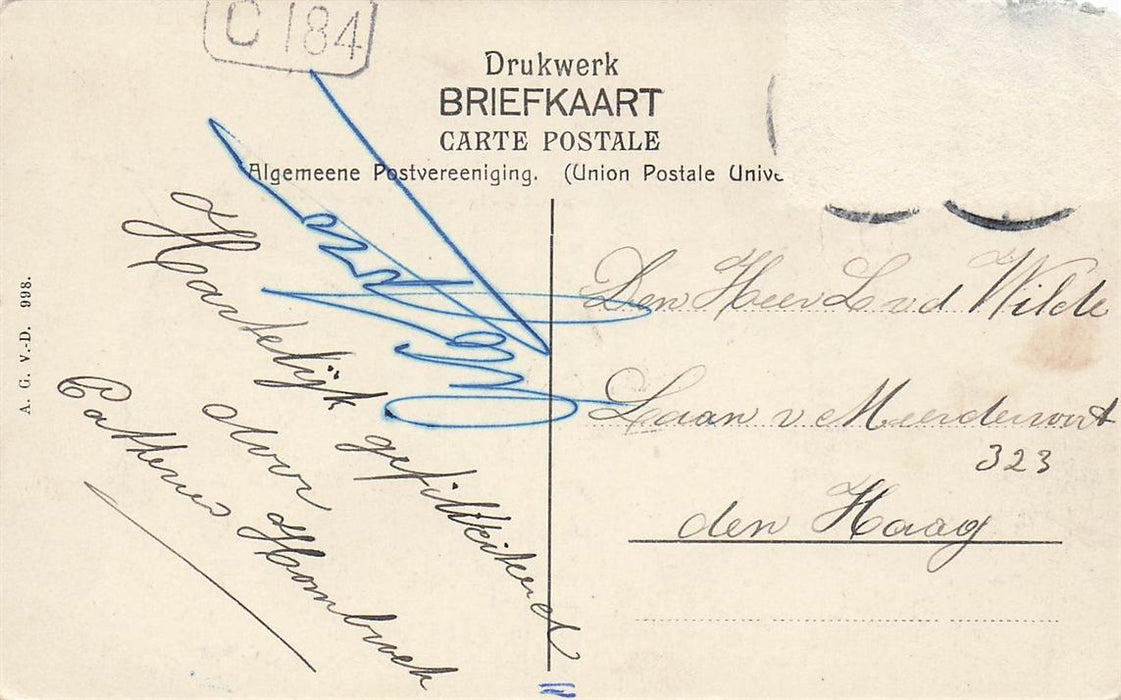 C 184
Drukwerk
BRIEFKAART
CARTE POSTALE
Algemeene Postvereeniging. (Union Postale Unive
Hartelijk gefiliciteerd
door
Hombroek
A. G. V.-D. 998.
Den Heer L v d Wilde
Laan v Meerdervoort
323
den Haag